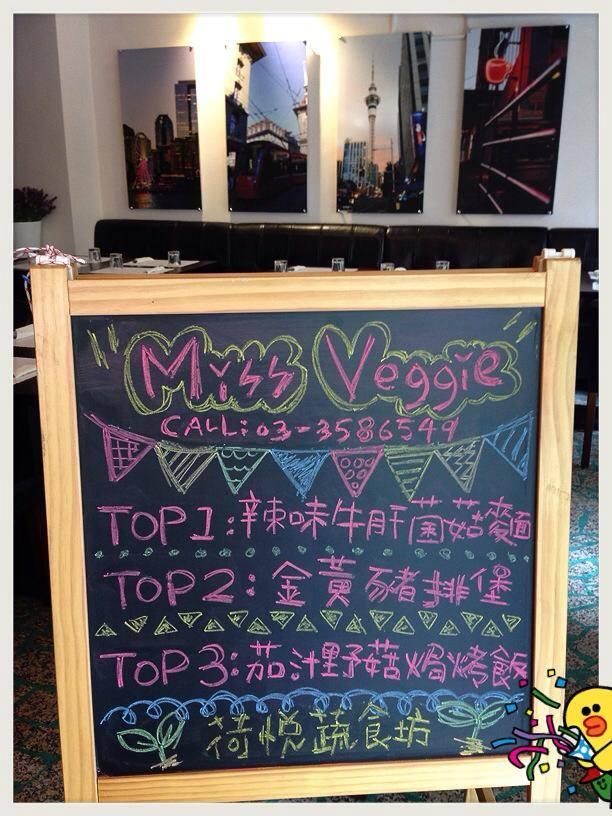 Miss Veggie
CALL:03-3586549
TOP1:辣味牛肝菌菇麵
TOP2:金黃豬排堡
TOP3:茄汁野菇焗烤飯
荷悅蔬食坊